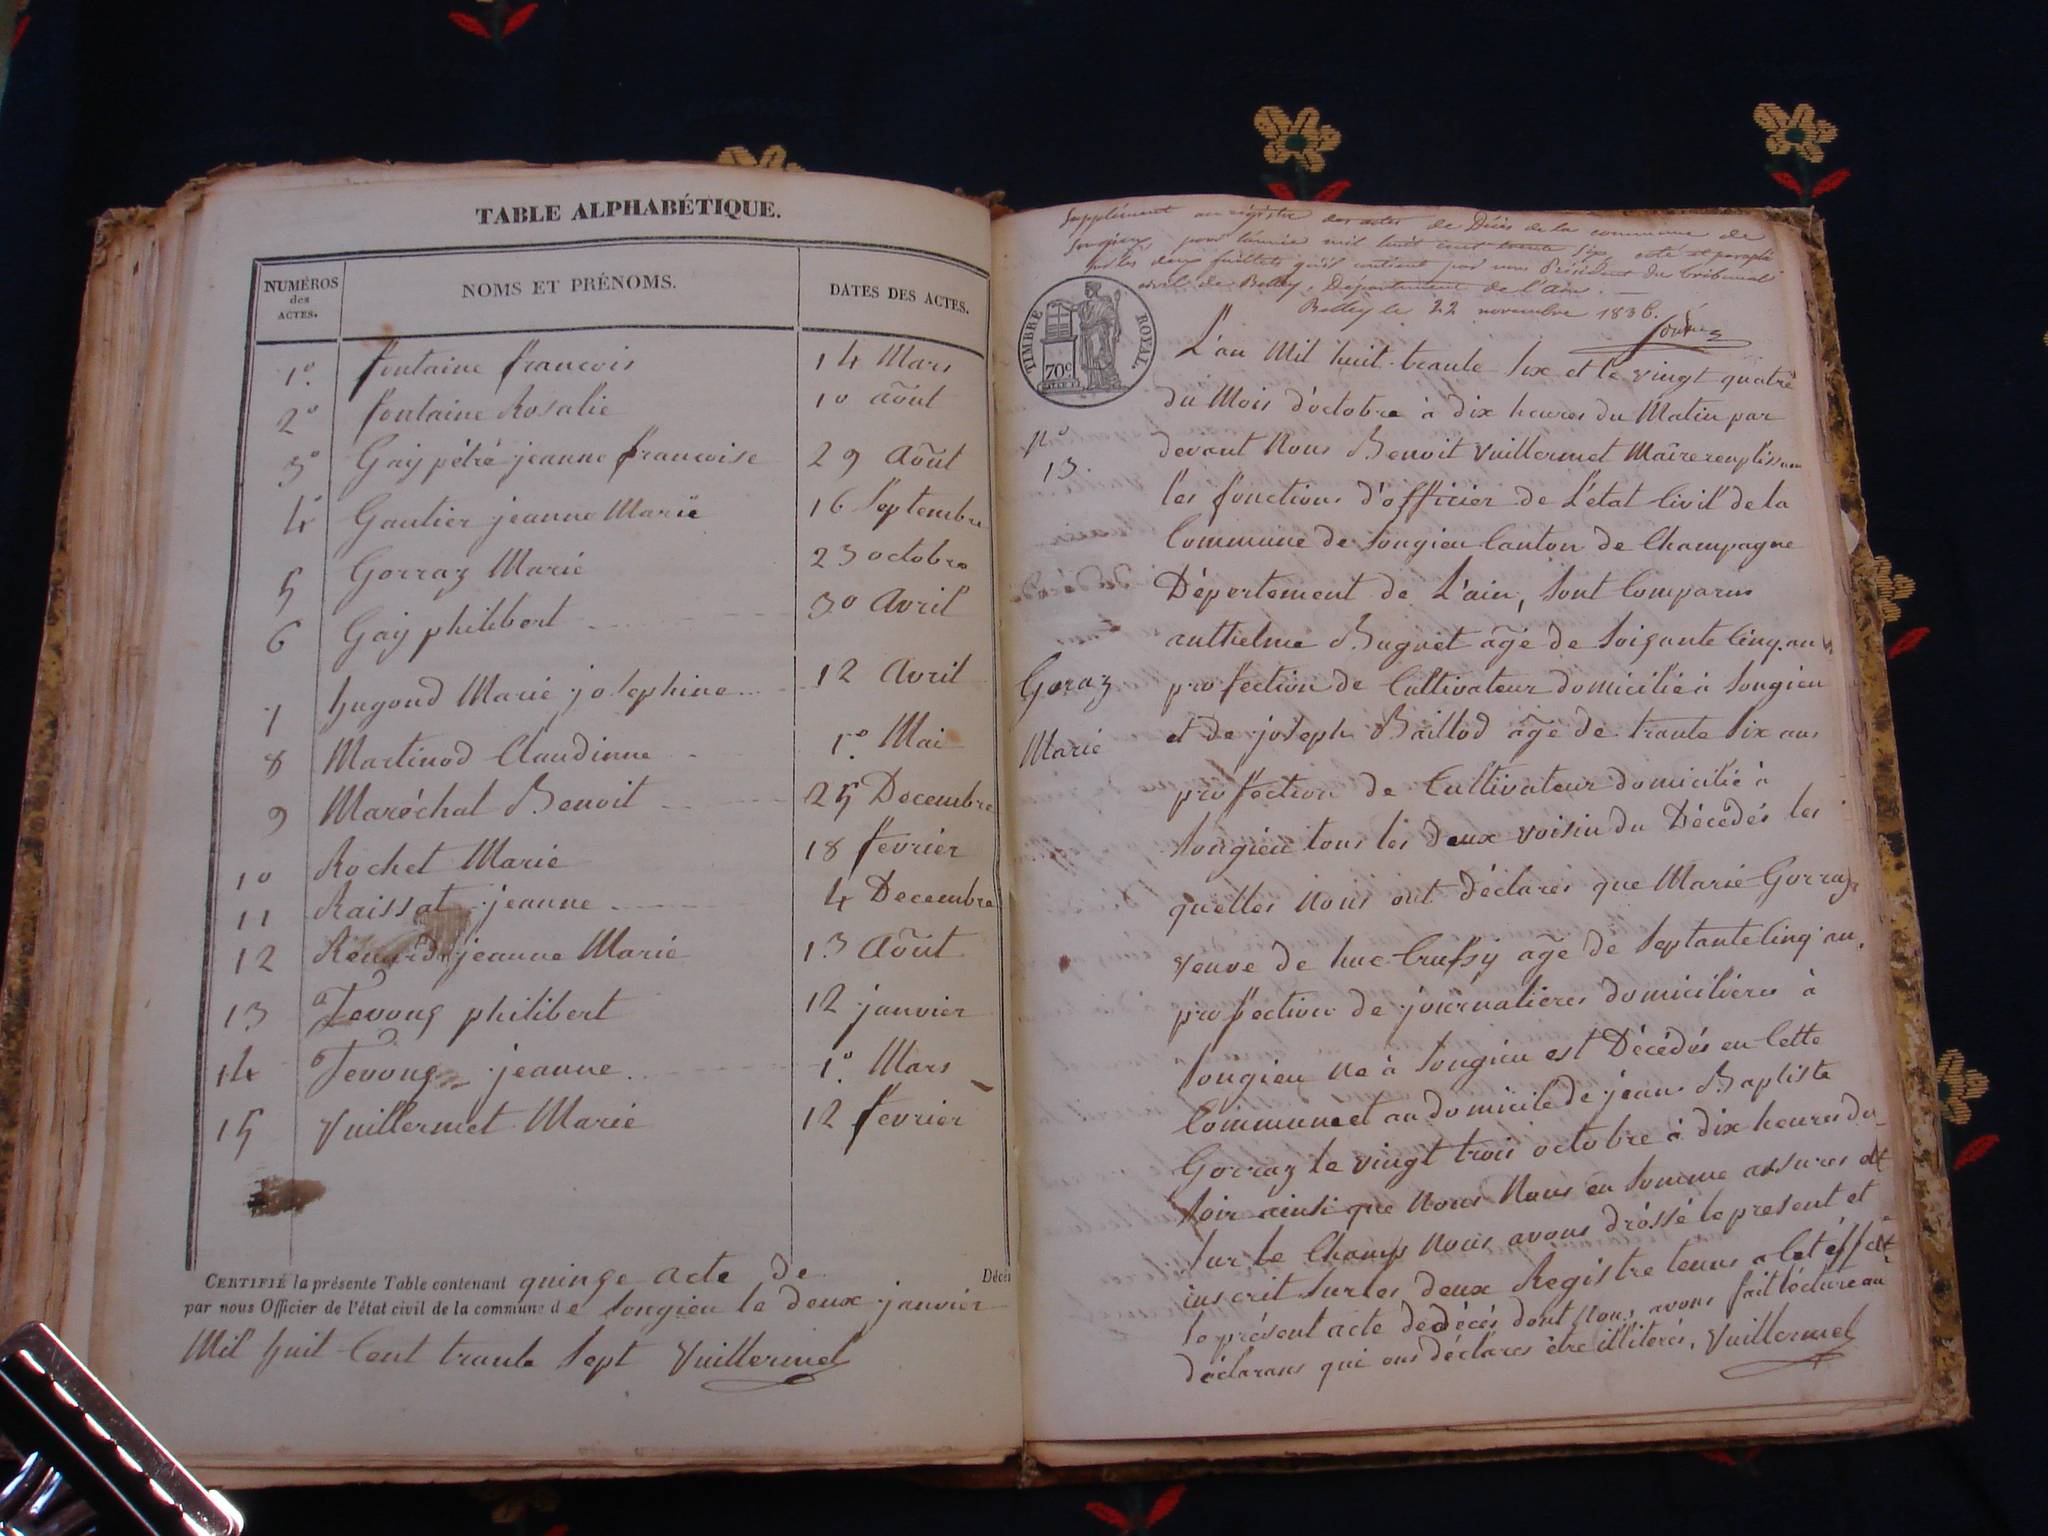 TABLE ALPHABÉTIQUE.
NUMÉROS des ACTES. NOMS ET PRÉNOMS. DATES DES ACTES.
1º. fontaine francois 14 Mars
2º fontaine Rosalie 10 aout
3º Gay pétré jeanne francoise 29 Aout
4 Gautier jeanne Marie 16 Septembre
5 Gorraz Marie 23 octobre
6 Gay philibert 30 Avril
7 hugond Marie josephine 12 Avril
8 Martinod Claudinne 1º. Mai
9 Maréchal Benoit 25 Decembre
10 Rochet Marie 18 fevrier
11 Raissat jeanne 4 Decembre
12 jeanne Marie 13 Aout
13 Tevong philibert 12 janvier
14 Tevong jeanne 1º. Mars
15 Vuillermet Marie 12 fevrier
CERTIFIÉ la présente Table contenant quinze acte de Décès
par nous Officier de l'état civil de la commune de Songieu le deux janvier
Mil huit Cent trante Sept Vuillermet
Supplément au régistre des actes de Décès de la commune de
Songieu pour l'année mil huit cent trente six, coté et paraphé
sur les deux feuillets qu'il contient par nous Président du tribunal
civil de Belley, Département de l'ain.
Belley le 22 novembre 1836.
TIMBRE ROYAL.
70c.
L'an Mil huit trante Six et le vingt quatre
du Mois d'octobre à dix heures du Matin par
Nº 13. devant Nous Benoit Vuillermet Maire remplissan
les fonctions d'officier de L'état Civil de la
Commune de Songieu Canton de Champagne
Département de L'ain, Sont Comparus
anthelme Buguet agé de Soixante Cinq ans
Goraz Marie profection de Cultivateur domicilié à Songieu
et de joseph Baillod age de trante Six ans
profection de Cultivateur domicilié à
Songieu tous les deux voisin du Décédés les
quelles Nous ont déclarés que Marie Gorraz
veuve de luc age de Septante Cinq an
profection de journalieres domicilieres à
Songieu Né à Songieu est Décédés en Cette
Commune et au domicile de jean Baptiste
Gorraz le vingt trois octobre à dix heures du
Soir ainsi que Nous Nous en Somme assures et
Sur le Champs Nous avons dréssé le present et
inscrit Sur les deux Registre tenus a Cet éffet
le présent acte de décés dont Nous avons fait lécture au
déclarans qui ons déclares être illiterés, Vuillermet